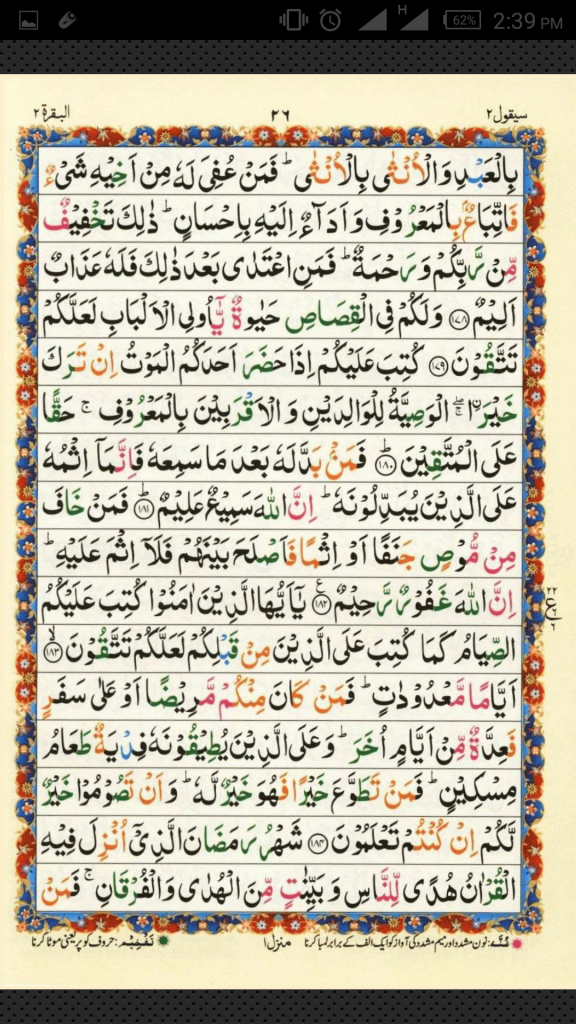 62% 2:39 PM
H
سیقول ۲ ۲۶ البقرۃ ۲
بِالْعَبْدِ وَالْاُنْثٰى بِالْاُنْثٰى ؕ فَمَنْ عُفِىَ لَهٗ مِنْ اَخِيْهِ شَىْءٌ
فَاتِّبَاعٌۢ بِالْمَعْرُوْفِ وَاَدَآءٌ اِلَيْهِ بِاِحْسَانٍ ؕ ذٰلِكَ تَخْفِيْفٌ
مِّنْ رَّبِّكُمْ وَرَحْمَةٌ ؕ فَمَنِ اعْتَدٰى بَعْدَ ذٰلِكَ فَلَهٗ عَذَابٌ
اَلِيْمٌ ﴿۱۷۸﴾ وَلَكُمْ فِى الْقِصَاصِ حَيٰوةٌ يّٰٓاُولِى الْاَلْبَابِ لَعَلَّكُمْ
تَتَّقُوْنَ ﴿۱۷۹﴾ كُتِبَ عَلَيْكُمْ اِذَا حَضَرَ اَحَدَكُمُ الْمَوْتُ اِنْ تَرَكَ
خَيْرَاۨ ۖۚ الْوَصِيَّةُ لِلْوَالِدَيْنِ وَالْاَقْرَبِيْنَ بِالْمَعْرُوْفِ ۚ حَقًّا
عَلَى الْمُتَّقِيْنَ ﴿۱۸۰﴾ؕ فَمَنْۢ بَدَّلَهٗ بَعْدَ مَا سَمِعَهٗ فَاِنَّمَآ اِثْمُهٗ
عَلَى الَّذِيْنَ يُبَدِّلُوْنَهٗ ؕ اِنَّ اللّٰهَ سَمِيْعٌ عَلِيْمٌ ﴿۱۸۱﴾ؕ فَمَنْ خَافَ
مِنْ مُّوْصٍ جَنَفًا اَوْ اِثْمًا فَاَصْلَحَ بَيْنَهُمْ فَلَآ اِثْمَ عَلَيْهِ ؕ
اِنَّ اللّٰهَ غَفُوْرٌ رَّحِيْمٌ ﴿۱۸۲﴾ يٰٓاَيُّهَا الَّذِيْنَ اٰمَنُوْا كُتِبَ عَلَيْكُمُ
الصِّيَامُ كَمَا كُتِبَ عَلَى الَّذِيْنَ مِنْ قَبْلِكُمْ لَعَلَّكُمْ تَتَّقُوْنَ ﴿۱۸۳﴾ۙ
اَيَّامًا مَّعْدُوْدٰتٍ ؕ فَمَنْ كَانَ مِنْكُمْ مَّرِيْضًا اَوْ عَلٰى سَفَرٍ
فَعِدَّةٌ مِّنْ اَيَّامٍ اُخَرَ ؕ وَعَلَى الَّذِيْنَ يُطِيْقُوْنَهٗ فِدْيَةٌ طَعَامُ
مِسْكِيْنٍ ؕ فَمَنْ تَطَوَّعَ خَيْرًا فَهُوَ خَيْرٌ لَّهٗ ؕ وَاَنْ تَصُوْمُوْا خَيْرٌ
لَّكُمْ اِنْ كُنْتُمْ تَعْلَمُوْنَ ﴿۱۸۴﴾ شَهْرُ رَمَضَانَ الَّذِىْٓ اُنْزِلَ فِيْهِ
الْقُرْاٰنُ هُدًى لِّلنَّاسِ وَبَيِّنٰتٍ مِّنَ الْهُدٰى وَالْفُرْقَانِ ۚ فَمَنْ
غُنّہ: نون مشدد اور میم مشدد کی آواز کو ایک الف کے برابر لمبا کرنا منزل ۱ تفخیم: حروف کو پُر یعنی موٹا کرنا